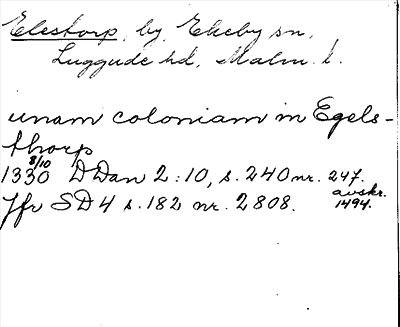 Elestorp, by, Ekeby sn,
Luggude hd, Malm. l.
unam coloniam in Egels-
thorp
1330 8/10 DDan 2:10, s. 240 nr. 247.
avskr.
Jfr SD 4 s. 182 nr. 2808. 1494.